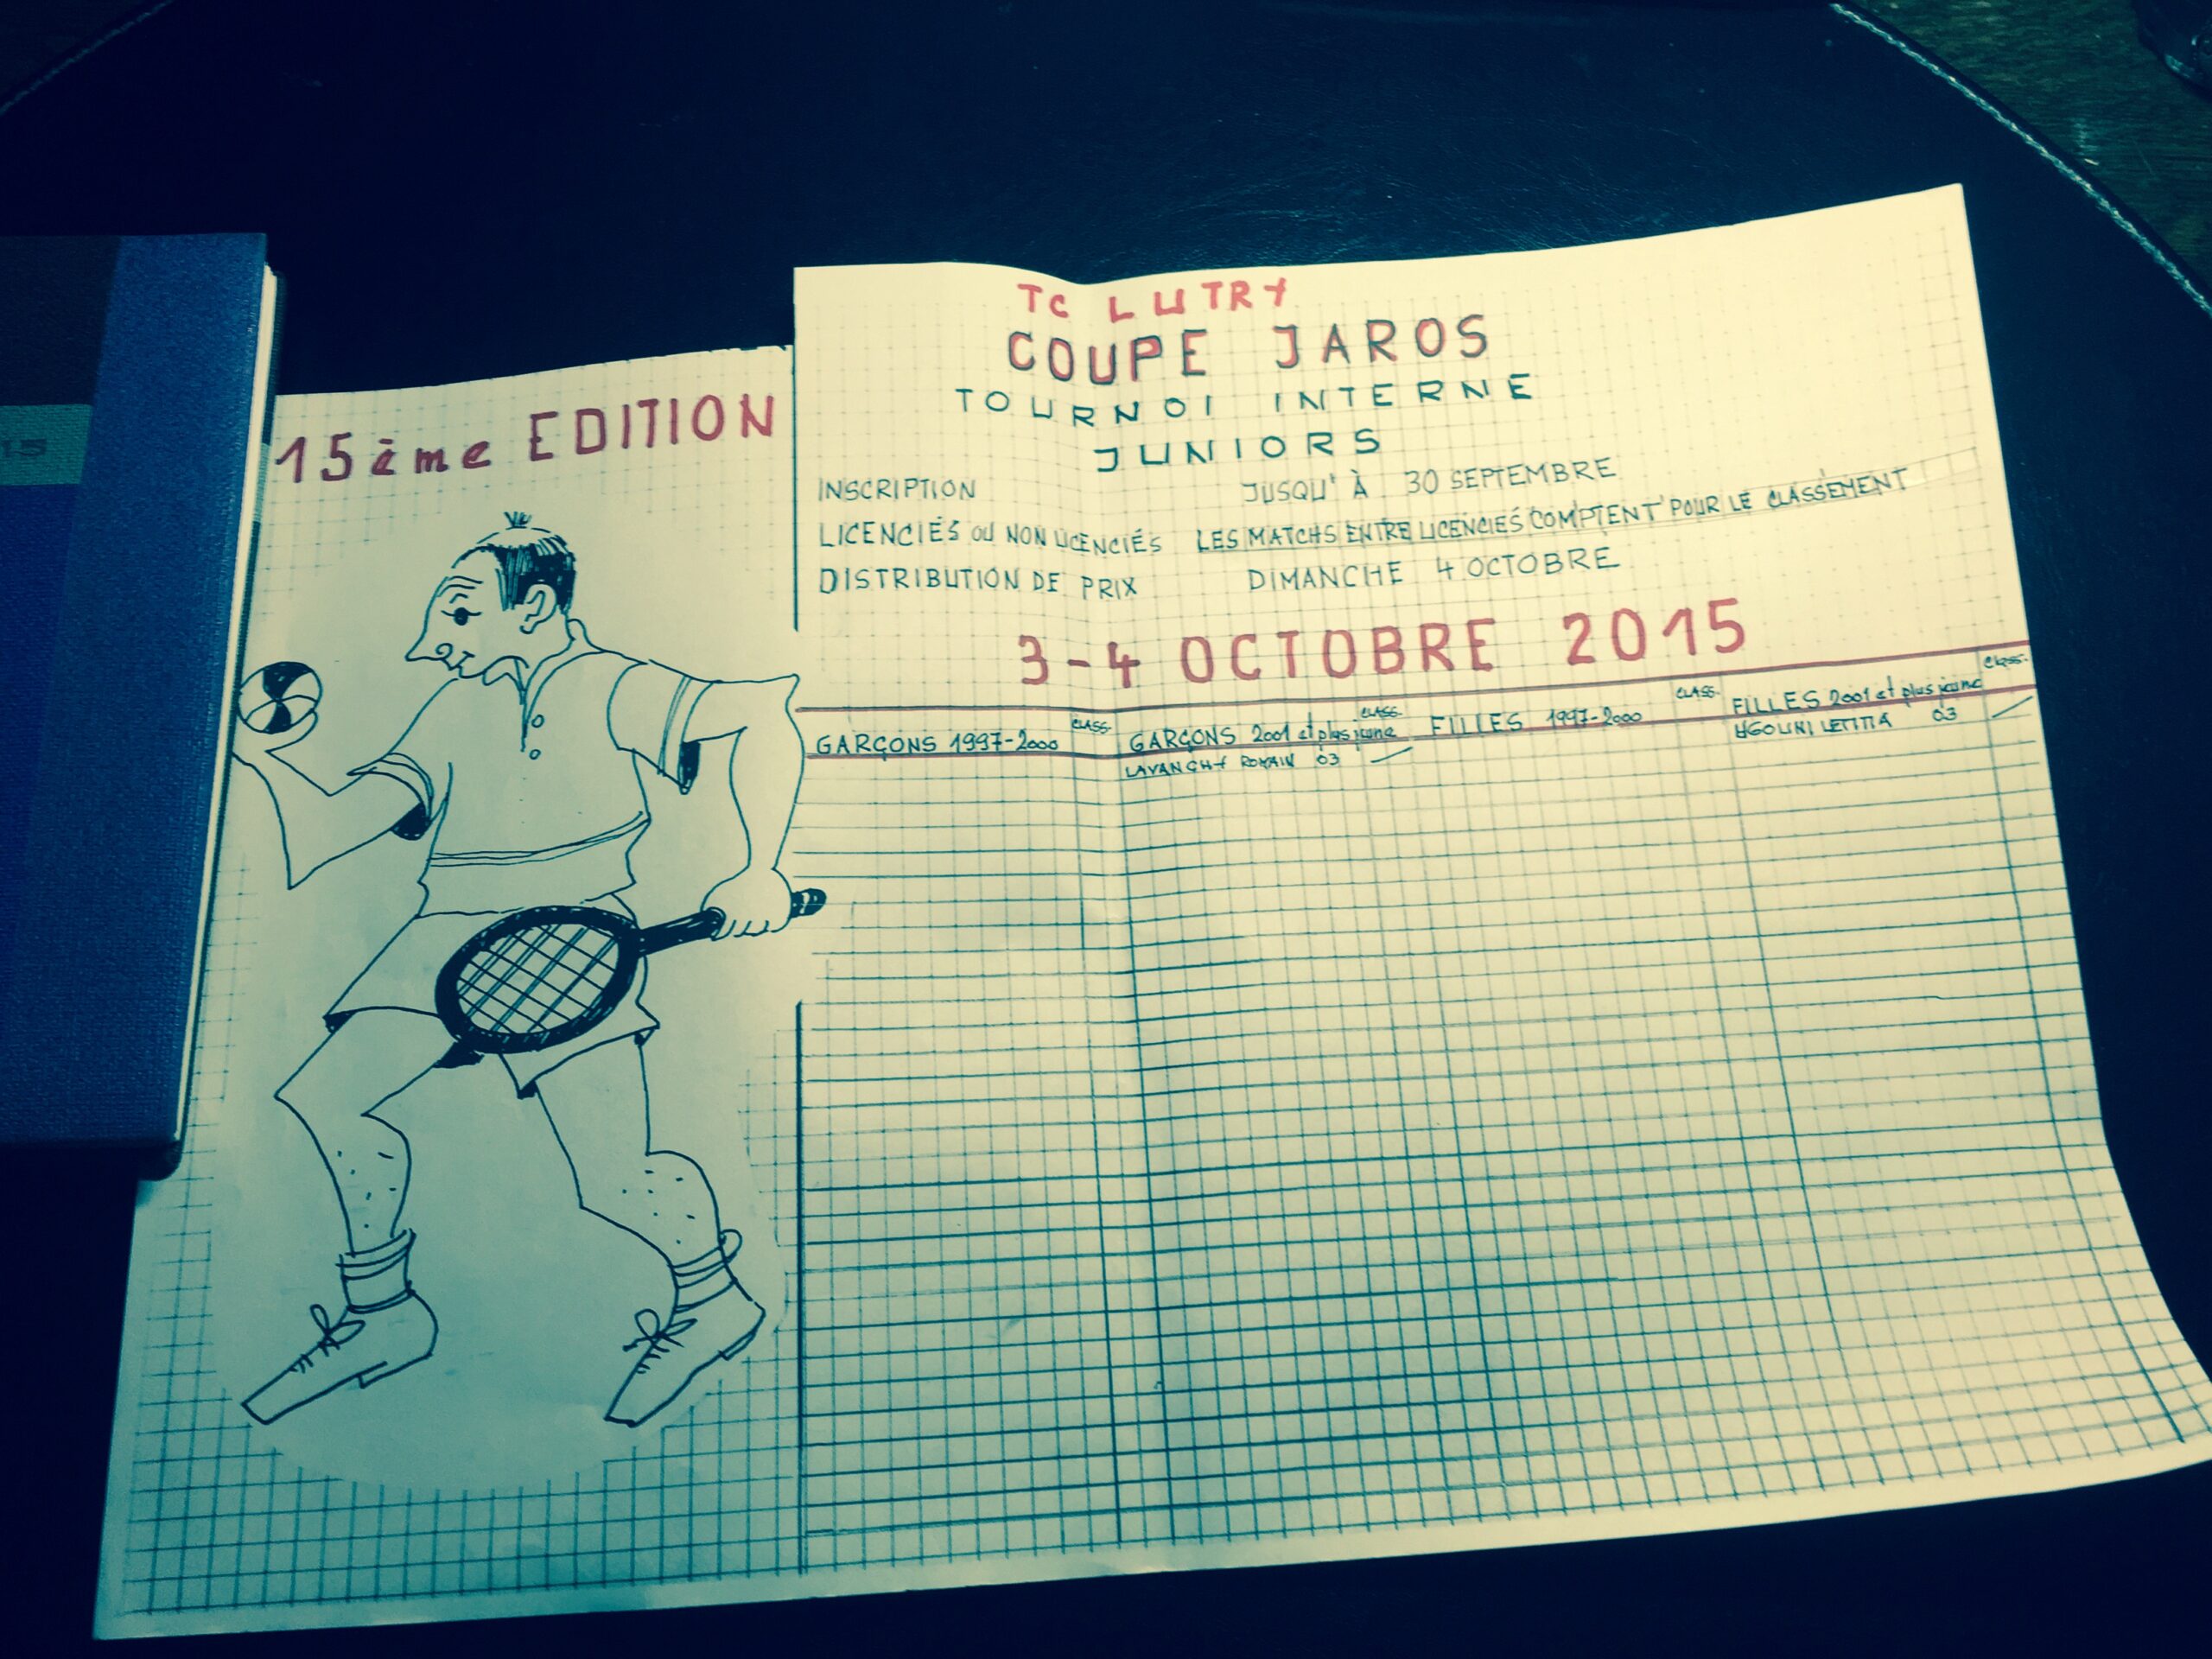 15
15ème EDITION
TC LUTRY
COUPE JAROS
TOURNOI INTERNE
JUNIORS
INSCRIPTION JUSQU'À 30 SEPTEMBRE
LICENCIÉS OU NON LICENCIÉS LES MATCHS ENTRE LICENCIÉS COMPTENT POUR LE CLASSEMENT
DISTRIBUTION DE PRIX DIMANCHE 4 OCTOBRE
3-4 OCTOBRE 2015
GARÇONS 1997-2000 CLASS. GARÇONS 2001 et plus jeune CLASS. FILLES 1997-2000 CLASS. FILLES 2001 et plus jeune Class.
LAVANCHY ROMAIN 03 UGOLINI LETITIA 03